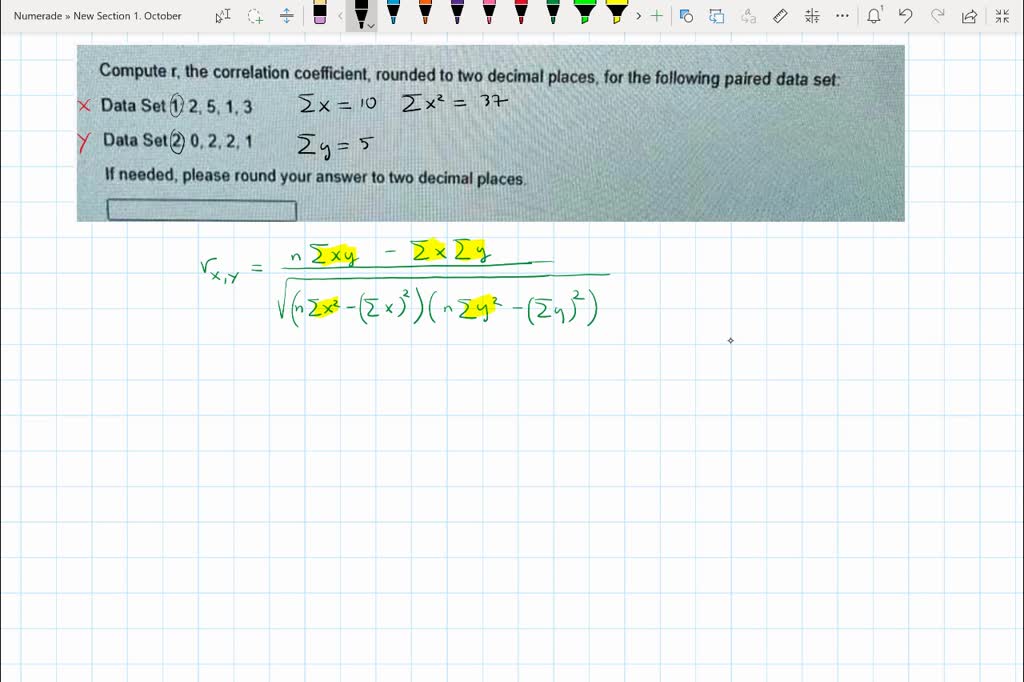 Numerade » New Section 1. October
Compute r, the correlation coefficient, rounded to two decimal places, for the following paired data set:
x Data Set 1) 2, 5, 1, 3 Σx = 10 Σx² = 37
y Data Set 2) 0, 2, 2, 1 Σy = 5
If needed, please round your answer to two decimal places.
r_{x,y} = (nΣxy - ΣxΣy) / √((nΣx² - (Σx)²)(nΣy² - (Σy)²))